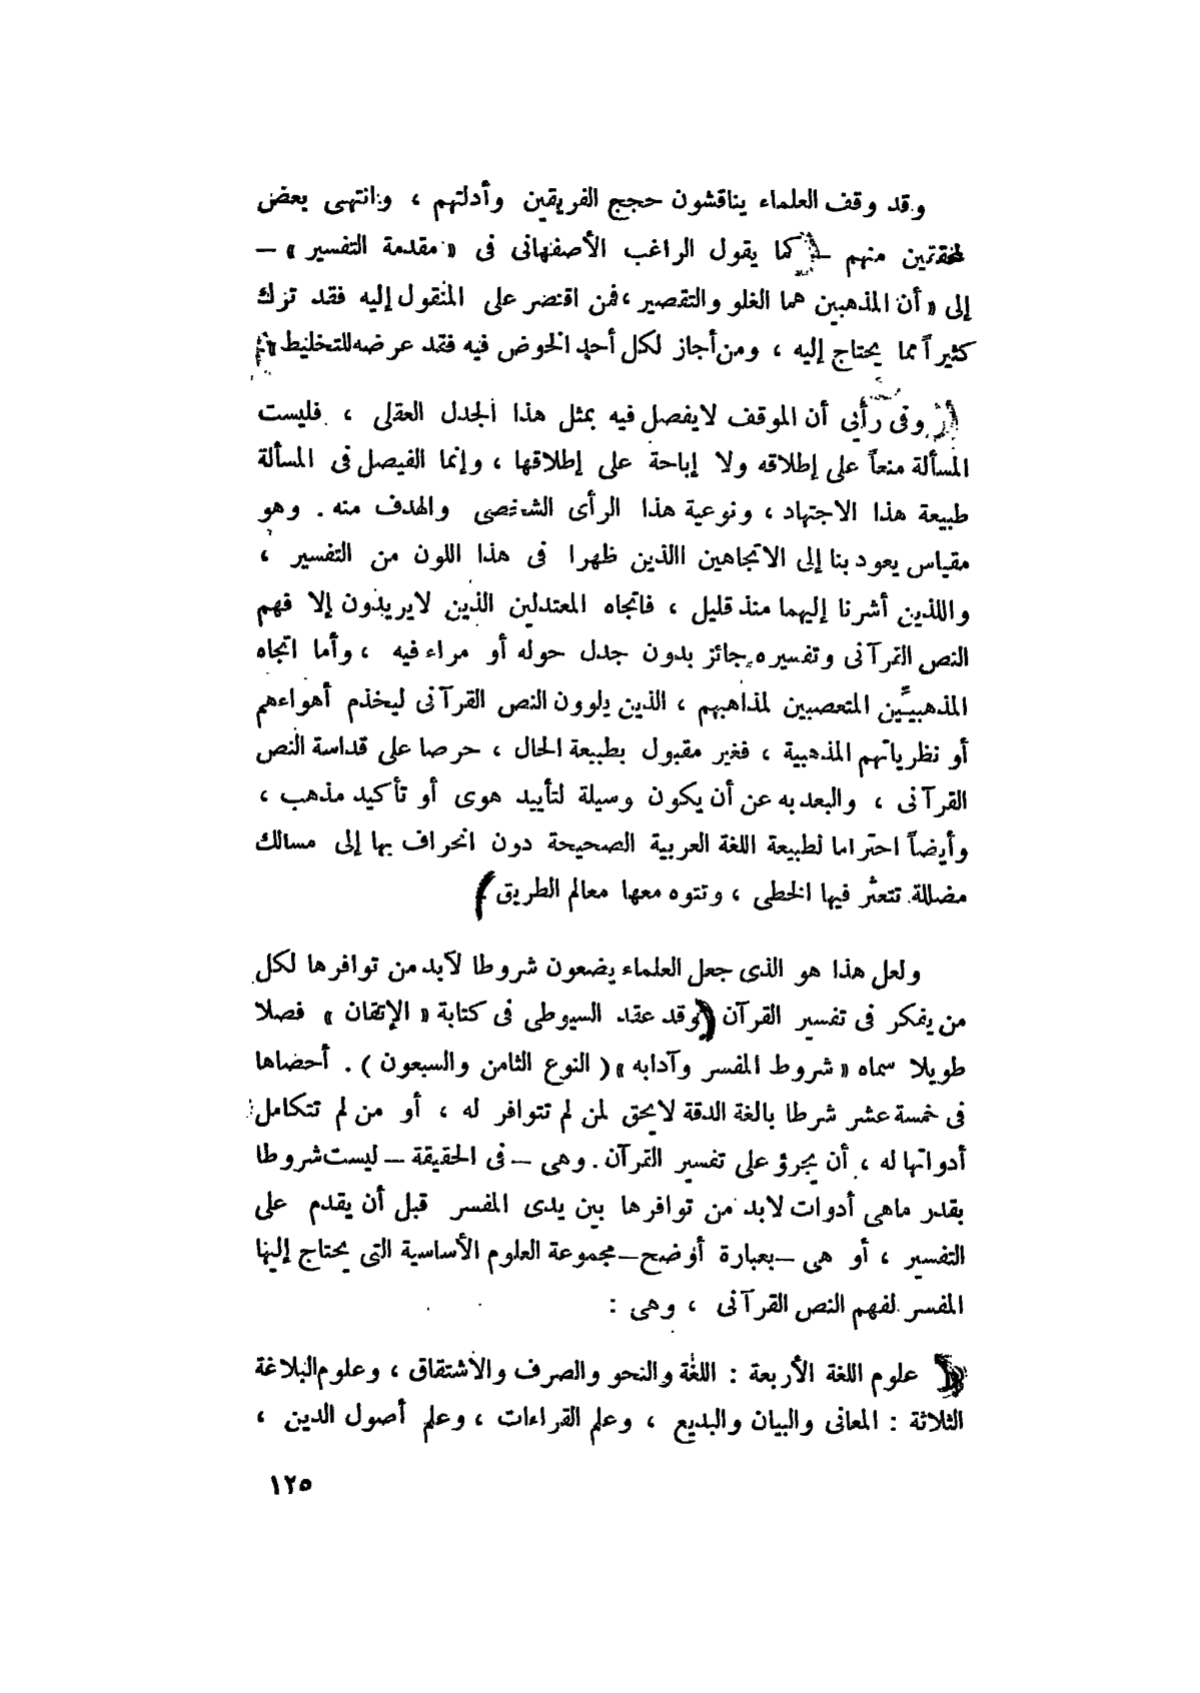 وقد وقف العلماء يناقشون حجج الفريقين وأدلتهم ، وانتهى بعض
المحققين منهم – كما يقول الراغب الأصفهانى فى « مقدمة التفسير » –
إلى « أن المذهبين هما الغلو والتقصير ، فمن اقتصر على المنقول إليه فقد ترك
كثيراً مما يحتاج إليه ، ومن أجاز لكل أحد الخوض فيه فقد عرضه للتخليط »
وفى رأيى أن الموقف لا يفصل فيه بمثل هذا الجدل العقلى ، فليست
المسألة منعاً على إطلاقه ولا إباحة على إطلاقها ، وإنما الفيصل فى المسألة
طبيعة هذا الاجتهاد ، ونوعية هذا الرأى الشخصى والهدف منه . وهو
مقياس يعود بنا إلى الاتجاهين االذين ظهرا فى هذا اللون من التفسير ،
واللذين أشرنا إليهما منذ قليل ، فاتجاه المعتدلين الذين لا يريدون إلا فهم
النص القرآنى وتفسيره جائز بدون جدل حوله أو مراء فيه ، وأما اتجاه
المذهبيِّين المتعصبين لمذاهبهم ، الذين يلوون النص القرآنى ليخدم أهواءهم
أو نظرياتهم المذهبية ، فغير مقبول بطبيعة الحال ، حرصا على قداسة النص
القرآنى ، والبعد به عن أن يكون وسيلة لتأييد هوى أو تأكيد مذهب ،
وأيضاً احتراما لطبيعة اللغة العربية الصحيحة دون انحراف بها إلى مسالك
مضللة تتعثر فيها الخطى ، وتتوه معها معالم الطريق .
ولعل هذا هو الذى جعل العلماء يضعون شروطا لابد من توافرها لكل
من يفكر فى تفسير القرآن ( وقد عقد السيوطى فى كتابة « الإتقان » فصلا
طويلا سماه « شروط المفسر وآدابه » ( النوع الثامن والسبعون ) . أحصاها
فى خمسة عشر شرطا بالغة الدقة لا يحق لمن لم تتوافر له ، أو من لم تتكامل
أدواتها له ، أن يجرؤ على تفسير القرآن . وهى – فى الحقيقة – ليست شروطا
بقدر ماهى أدوات لابد من توافرها بين يدى المفسر قبل أن يقدم على
التفسير ، أو هى – بعبارة أوضح – مجموعة العلوم الأساسية التى يحتاج إليها
المفسر لفهم النص القرآنى ، وهى :
علوم اللغة الأربعة : اللغة والنحو والصرف والاشتقاق ، وعلوم البلاغة
الثلاثة : المعانى والبيان والبديع ، وعلم القراءات ، وعلم أصول الدين ،
١٢٥